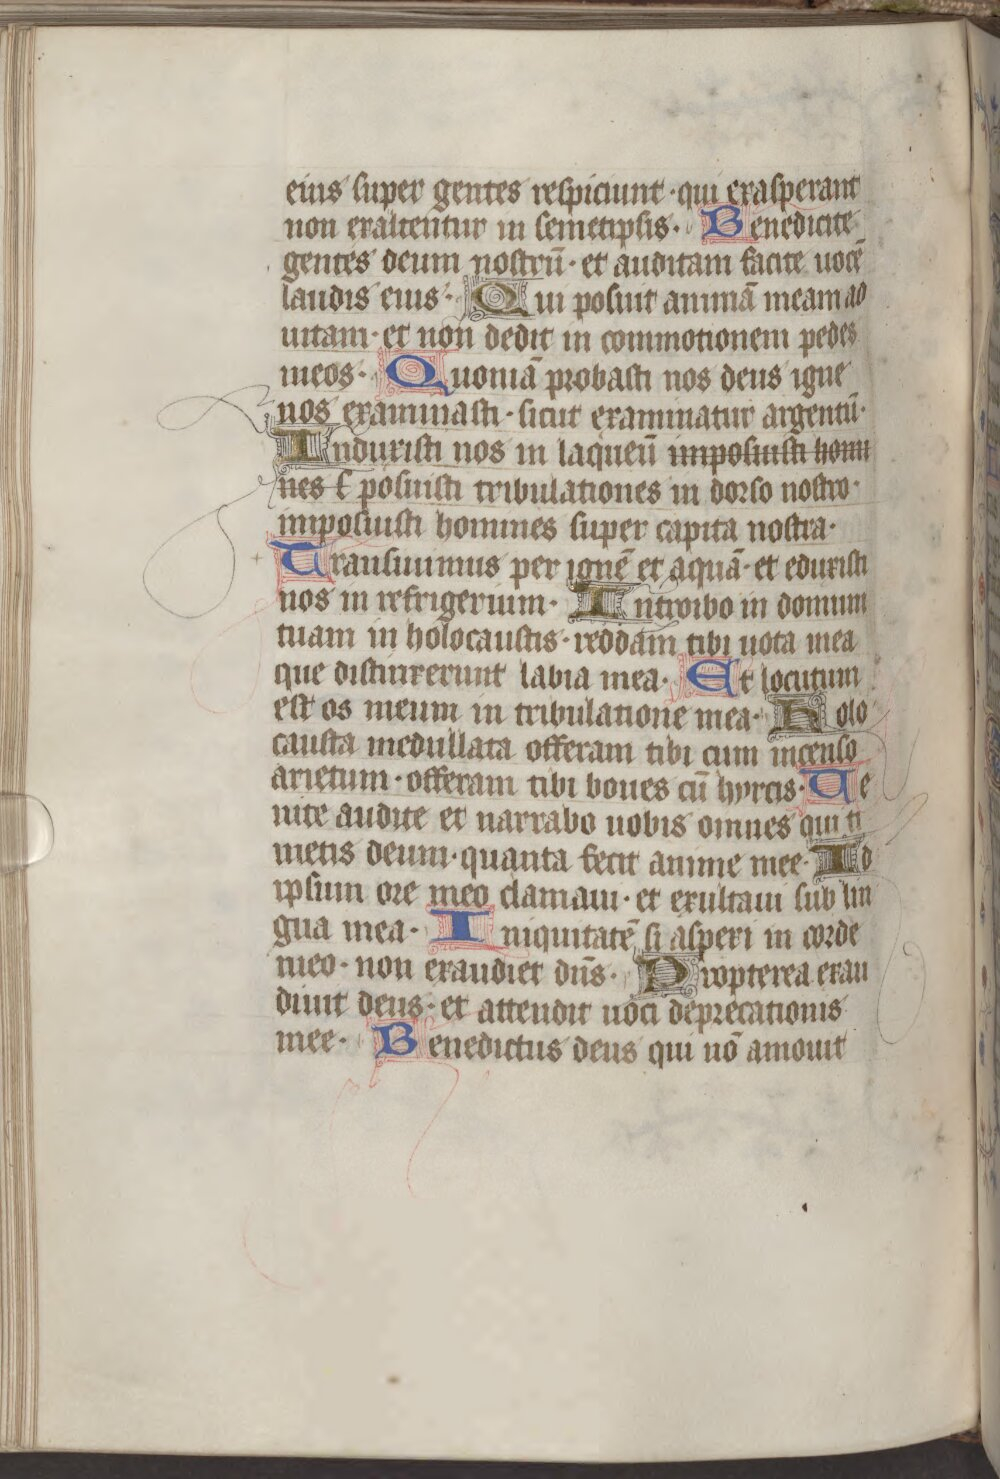 eius super gentes respiciunt · qui exasperant
non exaltentur in semetipsis · Benedicite
gentes deum nostrū · et auditam facite uocē
laudis eius · Qui posuit animā meam ad
uitam · et non dedit in commotionem pedes
meos · Quoniā probasti nos deus igne
nos examinasti · sicut examinatur argentū ·
Induxisti nos in laqueū imposuisti homi
nes s posuisti tribulationes in dorso nostro ·
imposuisti homines super capita nostra ·
Transiuimus per ignē et aquā · et eduxisti
nos in refrigerium · Introibo in domum
tuam in holocaustis · reddam tibi uota mea
que distinxerunt labia mea · Et locutum
est os meum in tribulatione mea · Holo
causta medullata offeram tibi cum incenso
arietum · offeram tibi boues cū hyrcis · Ue
nite audite et narrabo uobis omnes qui ti
metis deum · quanta fecit anime mee · Ad
ipsum ore meo clamaui · et exultaui sub lin
gua mea · Iniquitatē si aspexi in corde
meo · non exaudiet dn̄s · Propterea exau
diuit deus · et attendit uoci deprecationis
mee · Benedictus deus qui nō amouit